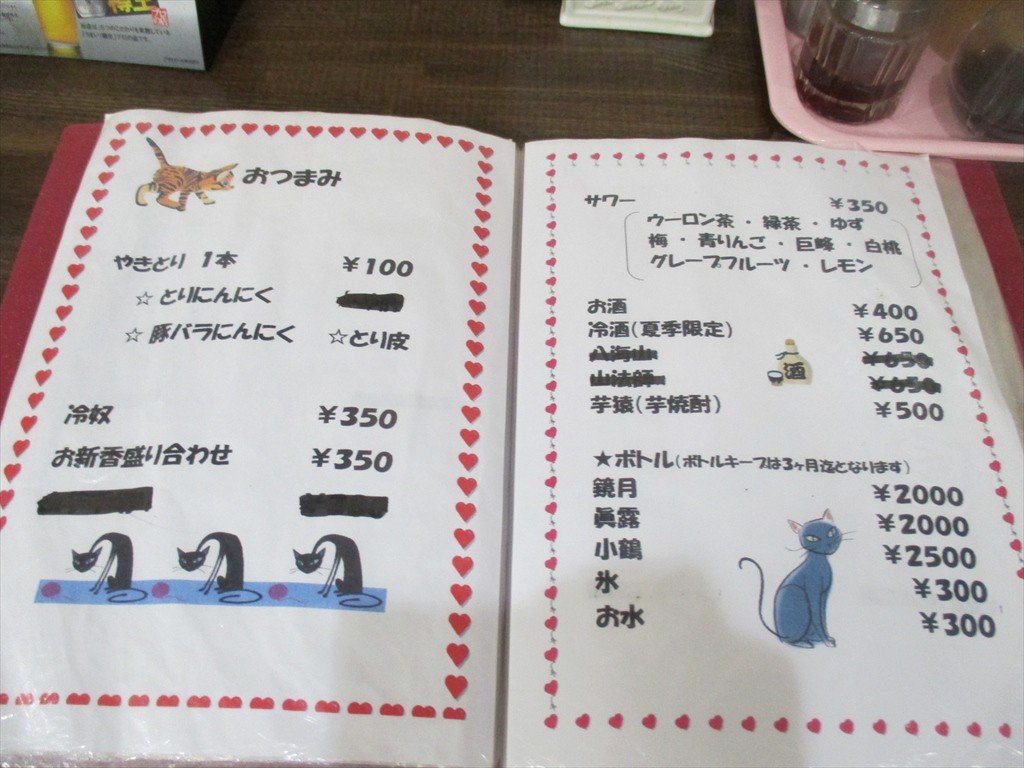 おつまみ
やきとり 1本 ¥100
☆ とりにんにく
☆ 豚バラにんにく ☆とり皮
冷奴 ¥350
お新香盛り合わせ ¥350
サワー ¥350
ウーロン茶・緑茶・ゆず
梅・青りんご・巨峰・白桃
グレープフルーツ・レモン
お酒 ¥400
冷酒(夏季限定) ¥650
八海山 ¥650
山法師 ¥650
芋猿(芋焼酎) ¥500
酒
★ボトル(ボトルキープは3ヶ月迄となります)
鏡月 ¥2000
眞露 ¥2000
小鶴 ¥2500
氷 ¥300
お水 ¥300